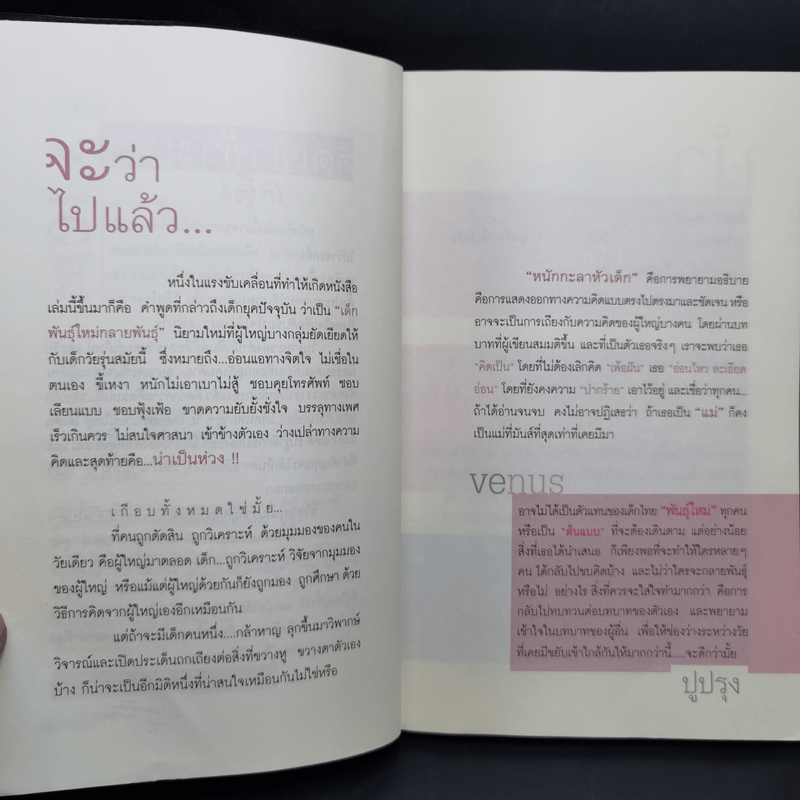 จะว่า
ไปแล้ว...
หนึ่งในแรงขับเคลื่อนที่ทำให้เกิดหนังสือ
เล่มนี้ขึ้นมาก็คือ คำพูดที่กล่าวถึงเด็กยุคปัจจุบัน ว่าเป็น "เด็ก
พันธุ์ใหม่กลายพันธุ์" นิยามใหม่ที่ผู้ใหญ่บางกลุ่มยัดเยียดให้
กับเด็กวัยรุ่นสมัยนี้ ซึ่งหมายถึง...อ่อนแอทางจิตใจ ไม่เชื่อใน
ตนเอง ขี้เหงา หนักไม่เอาเบาไม่สู้ ชอบคุยโทรศัพท์ ชอบ
เลียนแบบ ชอบฟุ้งเฟ้อ ขาดความยับยั้งชั่งใจ บรรลุทางเพศ
เร็วเกินควร ไม่สนใจศาสนา เข้าข้างตัวเอง ว่างเปล่าทางความ
คิดและสุดท้ายคือ...น่าเป็นห่วง !!
เกือบทั้งหมดใช่มั้ย...
ที่คนถูกตัดสิน ถูกวิเคราะห์ ด้วยมุมมองของคนใน
วัยเดียว คือผู้ใหญ่มาตลอด เด็ก...ถูกวิเคราะห์ วิจัยจากมุมมอง
ของผู้ใหญ่ หรือแม้แต่ผู้ใหญ่ด้วยกันก็ยังถูกมอง ถูกศึกษา ด้วย
วิธีการคิดจากผู้ใหญ่เองอีกเหมือนกัน
แต่ถ้าจะมีเด็กคนหนึ่ง....กล้าหาญ ลุกขึ้นมาวิพากษ์
วิจารณ์และเปิดประเด็นถกเถียงต่อสิ่งที่ขวางหู ขวางตาตัวเอง
บ้าง ก็น่าจะเป็นอีกมิติหนึ่งที่น่าสนใจเหมือนกันไม่ใช่หรือ
"หนักกะลาหัวเด็ก" คือการพยายามอธิบาย
คือการแสดงออกทางความคิดแบบตรงไปตรงมาและชัดเจน หรือ
อาจจะเป็นการเถียงกับความคิดของผู้ใหญ่บางคน โดยผ่านบท
บาทที่ผู้เขียนสมมติขึ้น และที่เป็นตัวเธอจริงๆ เราจะพบว่าเธอ
"คิดเป็น" โดยที่ไม่ต้องเลิกคิด "เพ้อฝัน" เธอ "อ่อนไหว ละเอียด
อ่อน" โดยที่ยังคงความ "ปากร้าย" เอาไว้อยู่ และเชื่อว่าทุกคน...
ถ้าได้อ่านจนจบ คงไม่อาจปฏิเสธว่า ถ้าเธอเป็น "แม่" ก็คง
เป็นแม่ที่มันส์ที่สุดเท่าที่เคยมีมา
venus
อาจไม่ได้เป็นตัวแทนของเด็กไทย "พันธุ์ใหม่" ทุกคน
หรือเป็น "ต้นแบบ" ที่จะต้องเดินตาม แต่อย่างน้อย
สิ่งที่เธอได้นำเสนอ ก็เพียงพอที่จะทำให้ใครหลายๆ
คน ได้กลับไปขบคิดบ้าง และไม่ว่าใครจะกลายพันธุ์
หรือไม่ อย่างไร สิ่งที่ควรจะใส่ใจทำมากกว่า คือการ
กลับไปทบทวนต่อบทบาทของตัวเอง และพยายาม
เข้าใจในบทบาทของผู้อื่น เพื่อให้ช่องว่างระหว่างวัย
ที่เคยมีขยับเข้าใกล้กันให้มากกว่านี้.....จะดีกว่ามั้ย
ปูปรุง